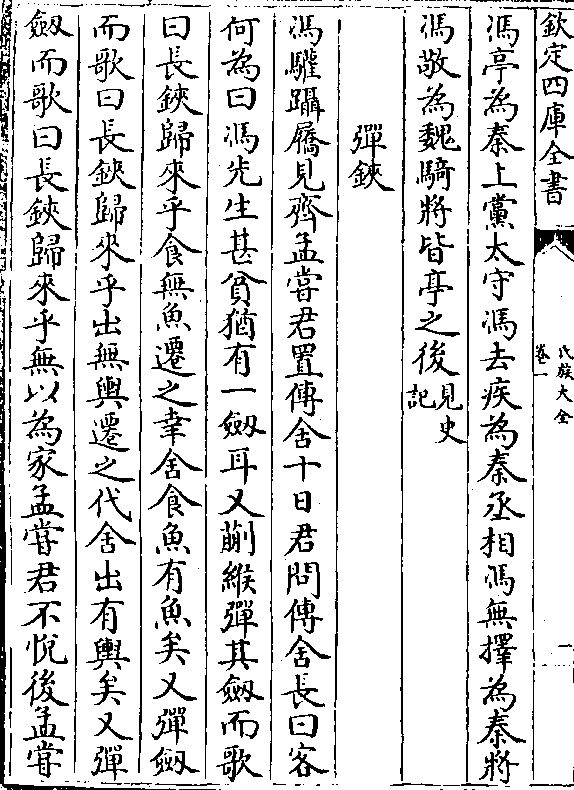 欽定四庫全書
氏族大全
卷一
馮亭為秦上黨太守馮去疾為秦丞相馮無擇為秦將
馮敬為魏騎將皆亭之後見史記
彈鋏
馮驩躡屩見齊孟嘗君置傳舍十日君問傳舍長曰客
何為曰馮先生甚貧猶有一劔耳又蒯緱彈其劔而歌
曰長鋏歸來乎食無魚遷之幸舍食魚有魚矣又彈劔
而歌曰長鋏歸來乎出無輿遷之代舍出有輿矣又彈
劔而歌曰長鋏歸來乎無以為家孟嘗君不悅後孟嘗